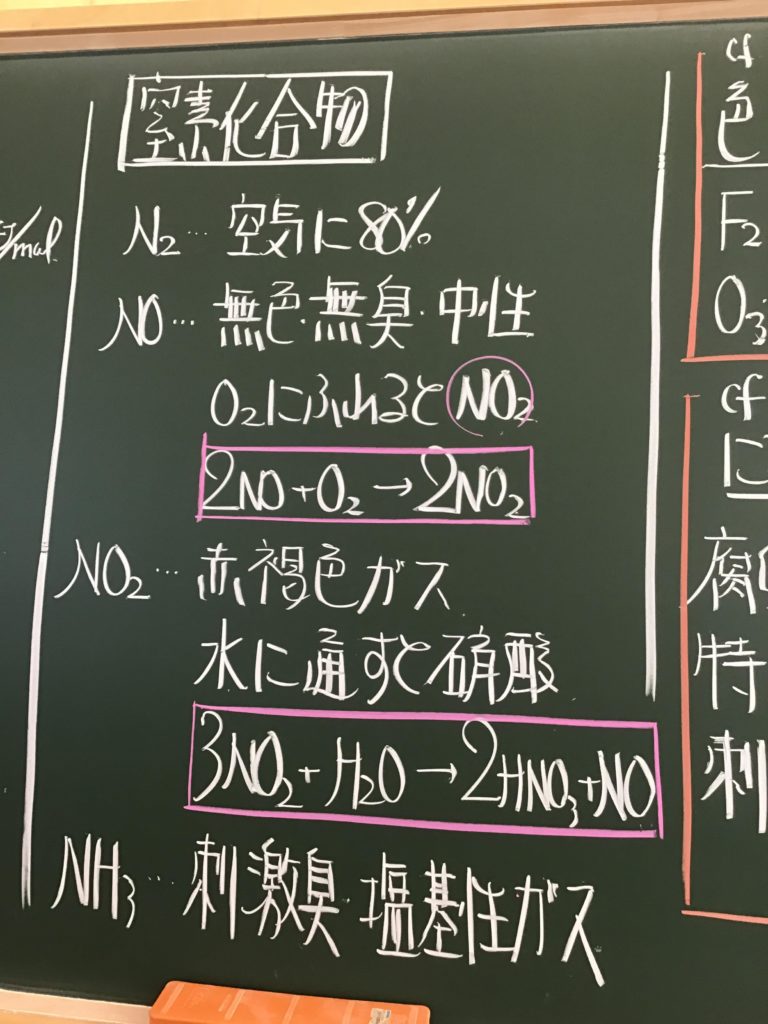 窒素化合物
N₂… 空気に80%
NO… 無色・無臭・中性
O₂にふれるとNO₂
2NO+O₂→2NO₂
NO₂… 赤褐色ガス
水に通すと硝酸
3NO₂+H₂O→2HNO₃+NO
NH₃… 刺激臭・塩基性ガス
/mol
cf
色
F₂
O₃
cf
に
腐
特
刺